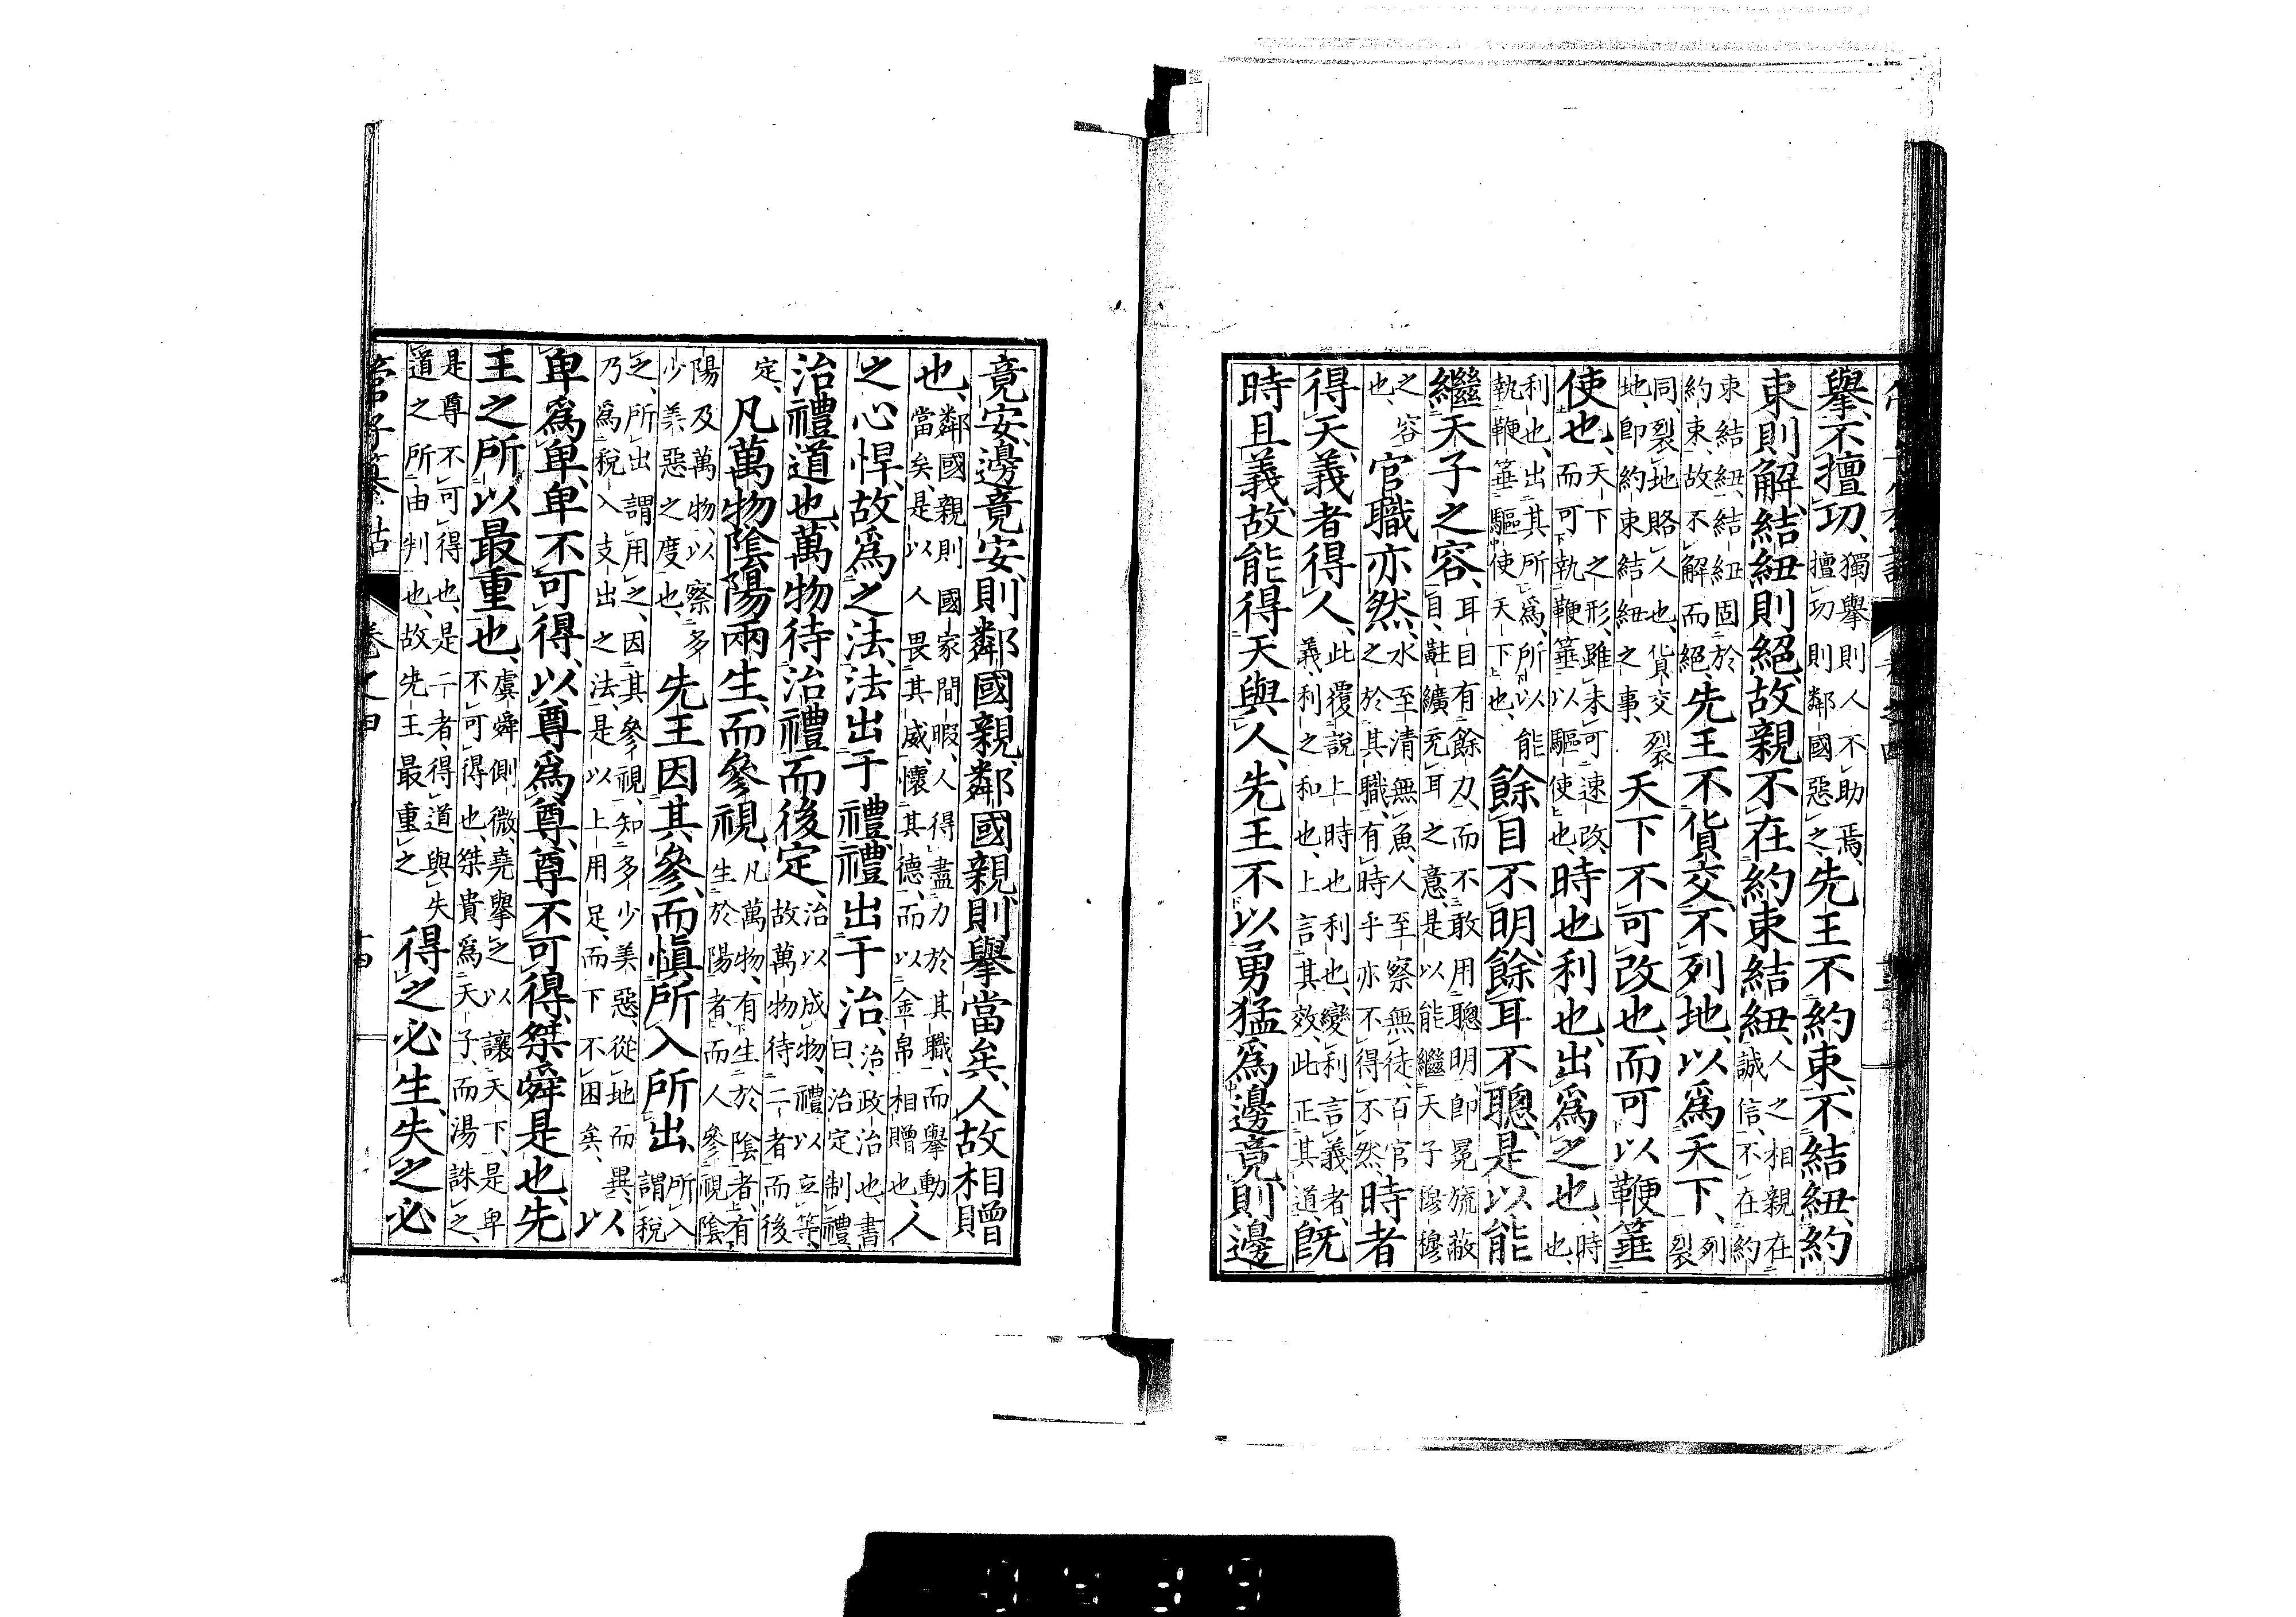 擧、不擅功、獨擧則人不助焉、擅功則鄰國惡之、先王不約束、不結紐、約
束則解、結紐則絕、故親不在約束結紐、人之相親在誠信、不在約
束結紐、結紐固於約束、故不解而絕、先王不貨交、不列地、以爲天下、列裂
同、裂地賂人也、貨交裂地、卽約束結紐之事、天下不可改也、而可以鞭箠
使也、天下之形、雖未可速改、而可執鞭箠以驅使也、時也利也、出爲之也、時也、
利也、出其所爲、所以能執鞭箠驅使天下也、餘目不明、餘耳不聰、是以能
繼天子之容、耳目有餘力、而不敢用聰明、卽冕旒蔽目、黈纊充耳之意、是以能繼天子穆穆
之容也、官職亦然、水至清無魚、人至察無徒、百官之於其職、有時乎亦不得不然、時者
得天、義者得人、此覆說上時也利也、變利言義者、義利之和也、上言其效、此正其道、旣
時且義、故能得天與人、先王不以勇猛爲邊竟、則邊
竟安、邊竟安、則鄰國親、鄰國親、則擧當矣、人故相贈
也、鄰國親則國家間暇、人得盡力於其職、而擧動當矣、是以人畏其威、懷其德、而以金帛相贈也、人
之心悍、故爲之法、法出于禮、禮出于治、治、政治也、書曰、治定制禮、
治禮道也、萬物待治禮而後定、治以成物、禮以立等、故萬物待二者而後
定、凡萬物陰陽兩生、而參視、凡萬物、有生於陰者、有生於陽者、而人參視陰
陽及萬物、以察多少美惡之度也、先王因其參、而愼所入所出、所入謂稅
之、所出謂用之、因其參視、知多少美惡、從地而異、以乃爲稅入支出之法、是以上用足、而下不困矣、以
卑爲卑、卑不可得、以尊爲尊、尊不可得、桀舜是也、先
王之所以最重也、虞舜側微、堯擧之以讓天下、是卑不可得也、桀貴爲天子、而湯誅之、
是尊不可得也、是二者、得道與失道之所由判也、故先王最重之、得之必生、失之必
管子纂詁 卷之四